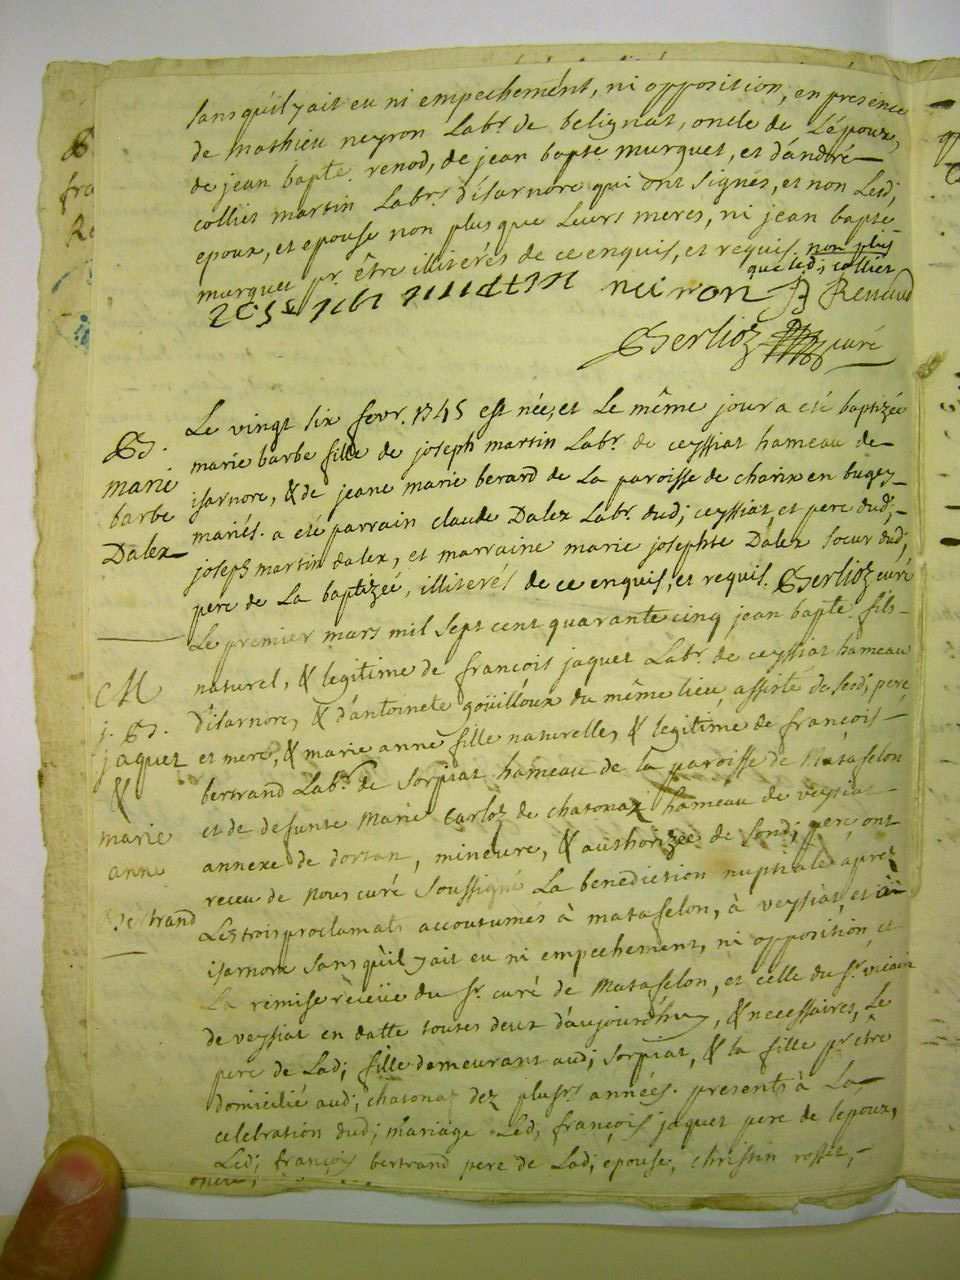 sans qu'il y ait eu ni empechement, ni opposition, en presence
de mathieu neyron Labr. de belignat, oncle de L'époux,
de jean bapte. renod, de jean bapte murquet, et d'andré
colliet martin Labrs. d'isarnore qui ont signés, et non Lesd;
epoux, et epouse non plus que Leurs meres, ni jean bapte
murquet pr. être illiterés de ce enquis, et requis. non plus
que led; colliet
neiron JB Renaud
Berlioz curé
B.
marie
barbe
Dalex
Le vingt six fevr. 1745 est née, et Le même jour a eté baptizée
marie barbe fille de joseph martin Labr. de ceyssiat hameau de
isarnore, & de jeane marie berard de La paroisse de charix en bugey
mariés. a eté parrain claude Dalex Labr. dud; ceyssiat, et pere dud;
joseph martin dalex, et marraine marie josephte Dalex soeur dud;
pere de La baptizée, illiterés de ce enquis, et requis. Berlioz curé
M
j. B.
jaquet
&
marie
anne
Bertrand
Le premier mars mil sept cent quarante cinq jean bapte. fils
naturel, & legitime de françois jaquet Labr. de ceyssiat hameau
d'isarnore, & d'antoinete goüilloux du même lieu, assisté de sesd; pere,
et mere, & marie anne fille naturelle, & legitime de françois
bertrand Labr. de sorpiat hameau de la paroisse de Mataselon
et de defunte Marie Carloz de chatonax hameau de veysiat
annexe de dortan, mineure, & authorizée de sond; pere, ont
receu de Nous curé soussigné La benediction nuptiale apres
Les trois proclamats accoutumés à mataselon, à veysiat, et à
isarnore sans qu'il y ait eu ni empechement, ni opposition, et
La remise reçeüe du sr. curé de Mataselon, et celle du sr. vicaire
de veysiat en datte toutes deux d'aujourd'huy, & necessaires, Le
pere de Lad; fille demeurant aud; sorpiat, & la fille pr. être
domicilié aud; chatonax dez plusrs. années. presents à La
celebration dud; mariage Led; françois jaquet pere de l'epoux,
Led; françois bertrand pere de Lad; epouse, christin rosset,